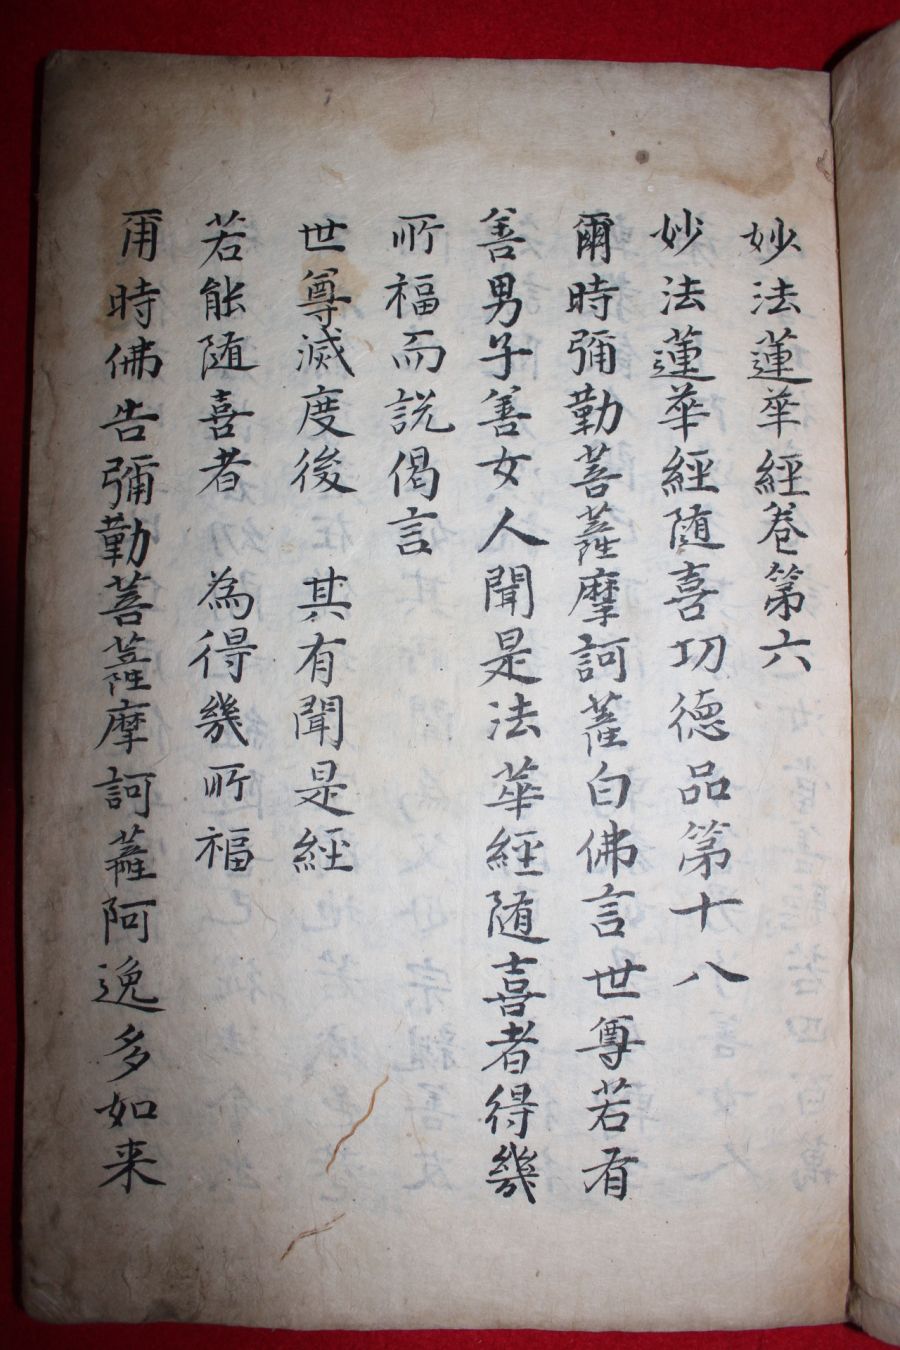 妙法蓮華經卷第六
妙法蓮華經随喜功德品第十八
爾時彌勒菩薩摩訶薩白佛言世尊若有
善男子善女人聞是法華經随喜者得幾
所福而說偈言
世尊滅度後 其有聞是經
若能随喜者 為得幾所福
爾時佛告彌勒菩薩摩訶薩阿逸多如来